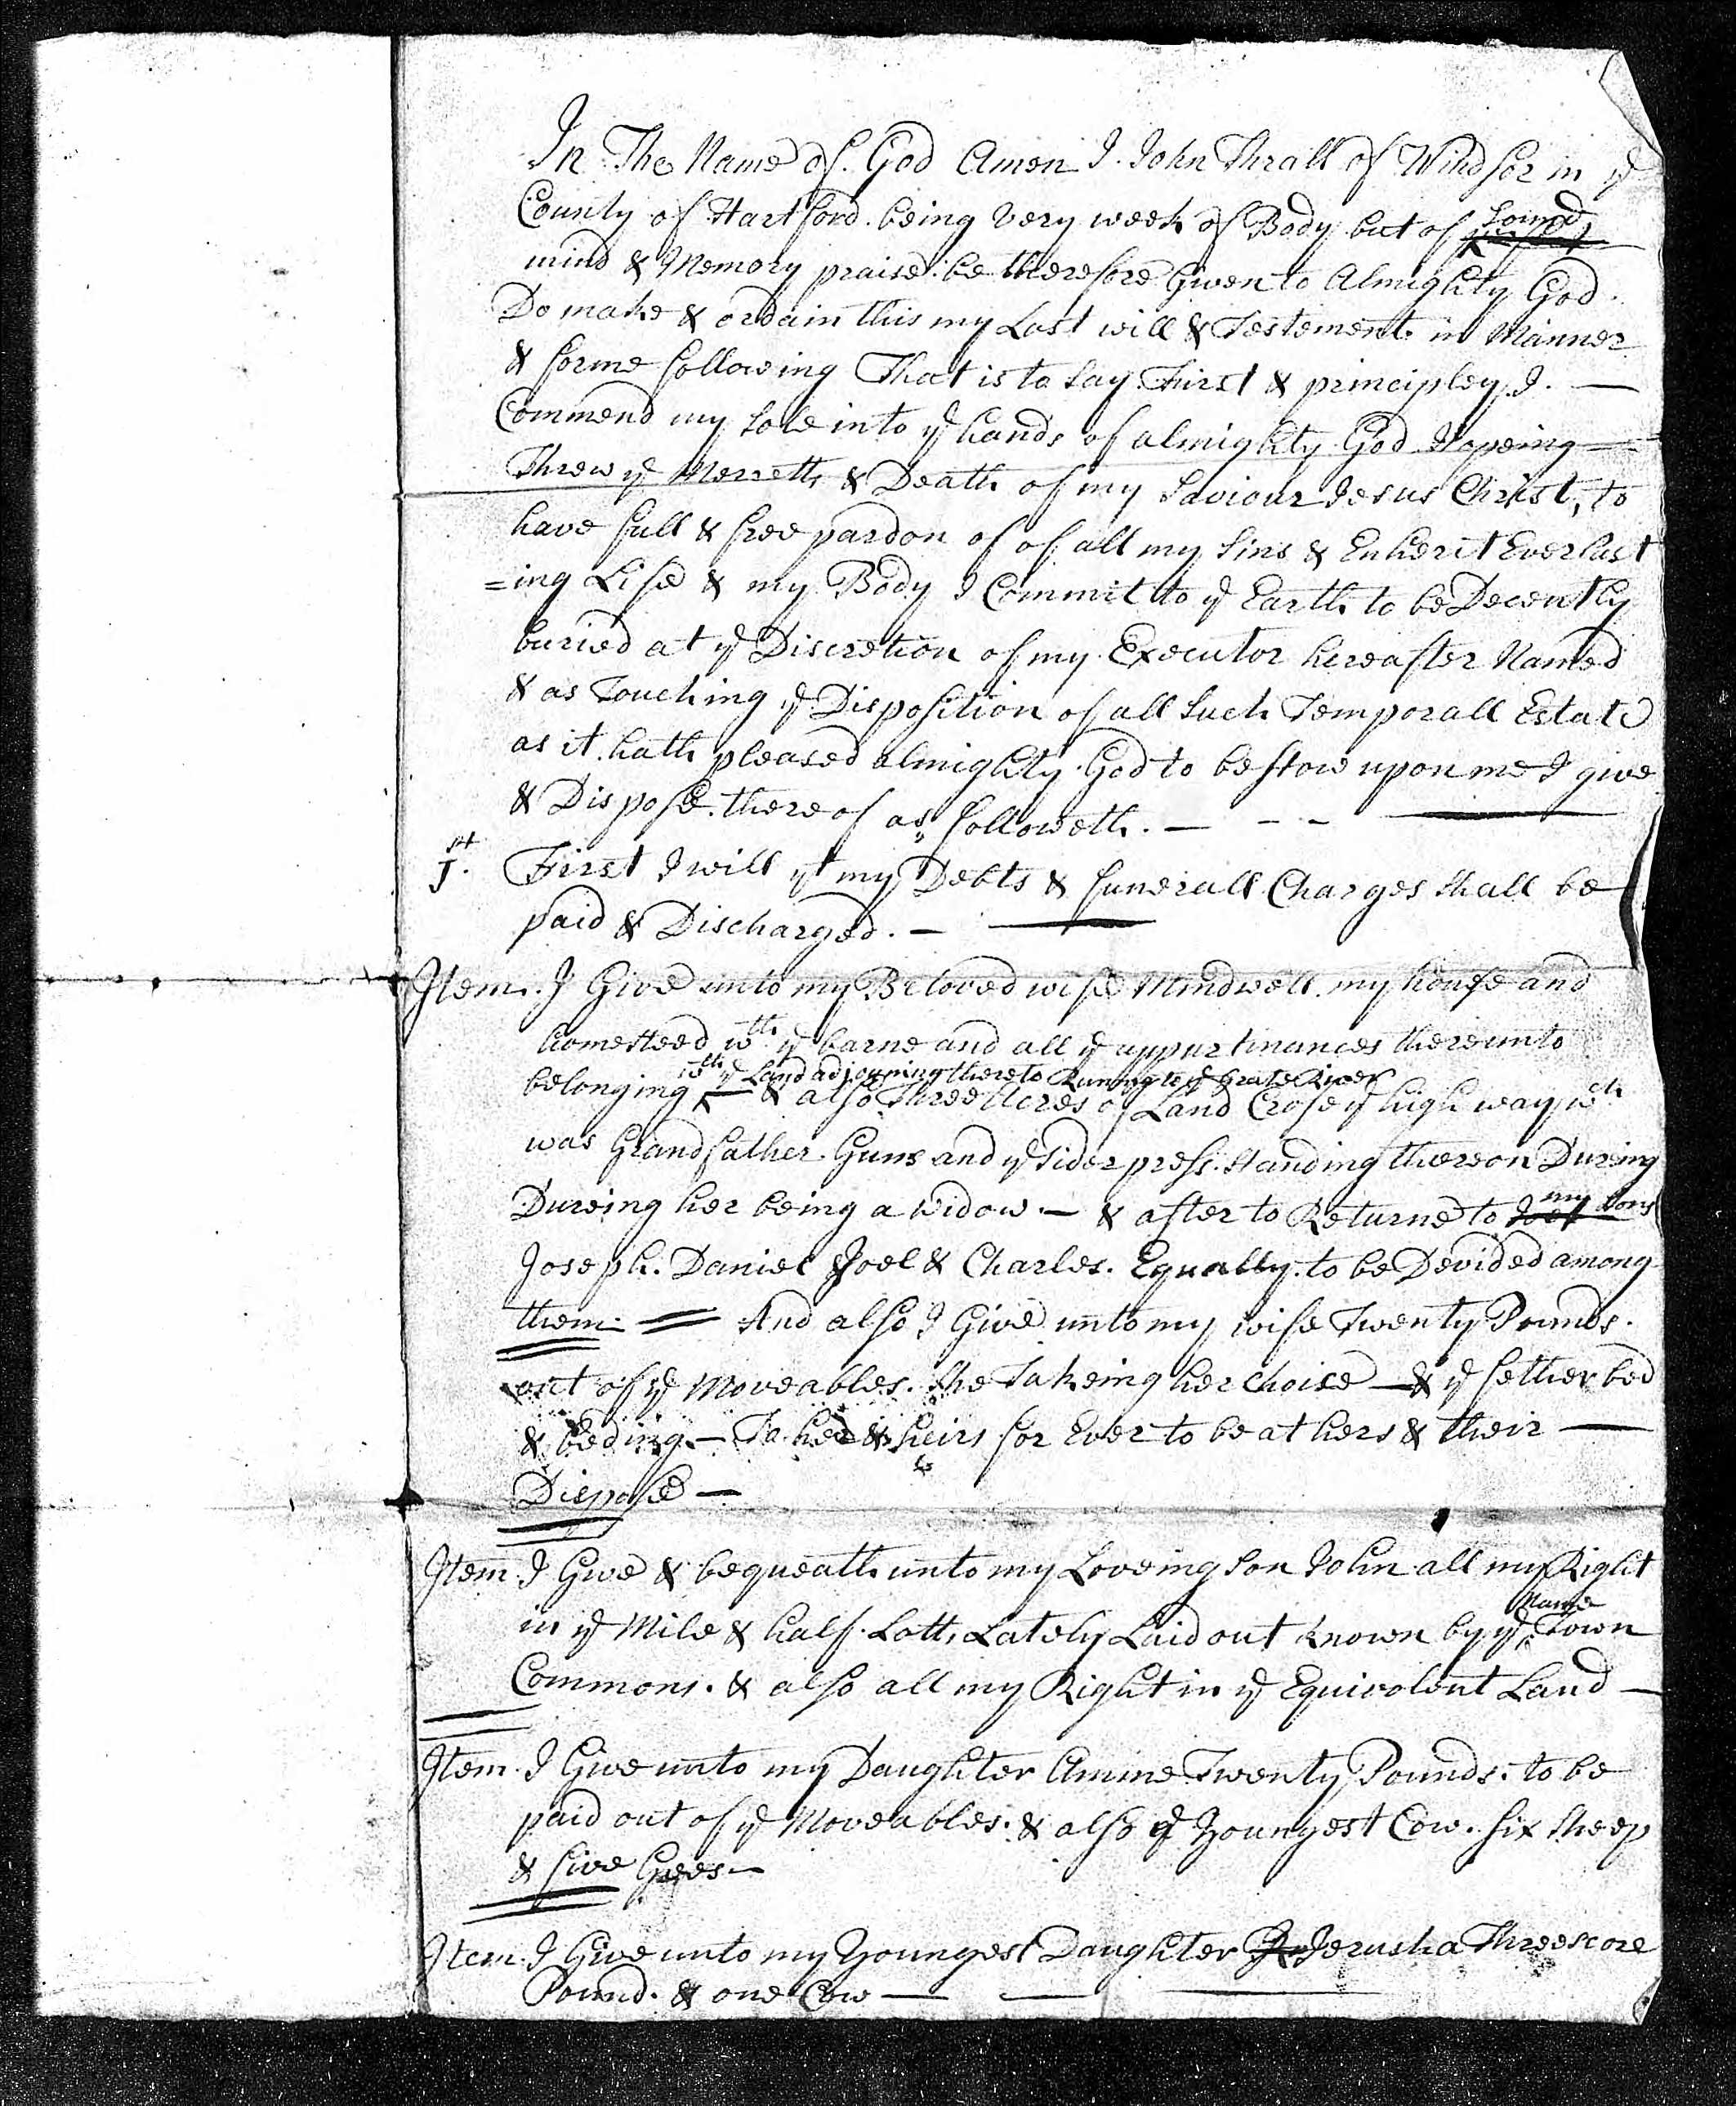 In The Name of God Amen I John Thrall of Windsor in ye
County of Hartford being very week of Body but of sound
mind & Memory praise be therefore Given to Almighty God
Do make & ordain this my Last will & Testement in Manner
& forme following That is to say First & principley I —
Commend my sole into ye hands of almighty God Hopeing —
Threw ye Merretts & Death of my Saviour Jesus Christ, to
have full & free pardon of of all my sins & Enherit Everlast
=ing Life & my Body I Commit to ye Earth to be Decently
buried at ye Discretion of my Executor hereafter Named
& as Touching ye Disposition of all such Temporall Estate
as it hath pleased almighty God to bestow upon me I give
& Dispose thereof as followeth. — - - —
1st. First I will yt my Debts & funerall Charges shall be
paid & Discharged. — —
Item. I Give unto my Beloved wife Mindwell my house and
homesteed wth ye barne and all ye appurtinances thereunto
wth ye Land adjoyning thereto Runing to ye Grate River
belonging — & also Three Acres of Land Crose ye high way wch
was Grandfather Guns and ye sider press standing thereon During
Dureing her being a widow — & after to Returne to my sons
Joseph. Daniel Joel & Charles. Equally to be Devided among
them — And also I Give unto my wife Twenty Pounds.
out of ye Moveables. she Takeing her choise — & ye fether bed
& beding — To her & heirs for Ever to be at hers & their —
Dispose —
Item I Give & bequeath unto my Loveing son John all my Right
in ye Mile & half Lott, Lately Laid out known by ye Name Town
Commons. & also all my Right in ye Equivolent Land —
Item I Give unto my Daughter Amine Twenty Pounds: to be
paid out of ye Moveables. & also ye Youngest Cow. six sheep
& five Gees —
Item I Give unto my Youngest Daughter Jerusha Threescore
Pound. & one Cow — — —